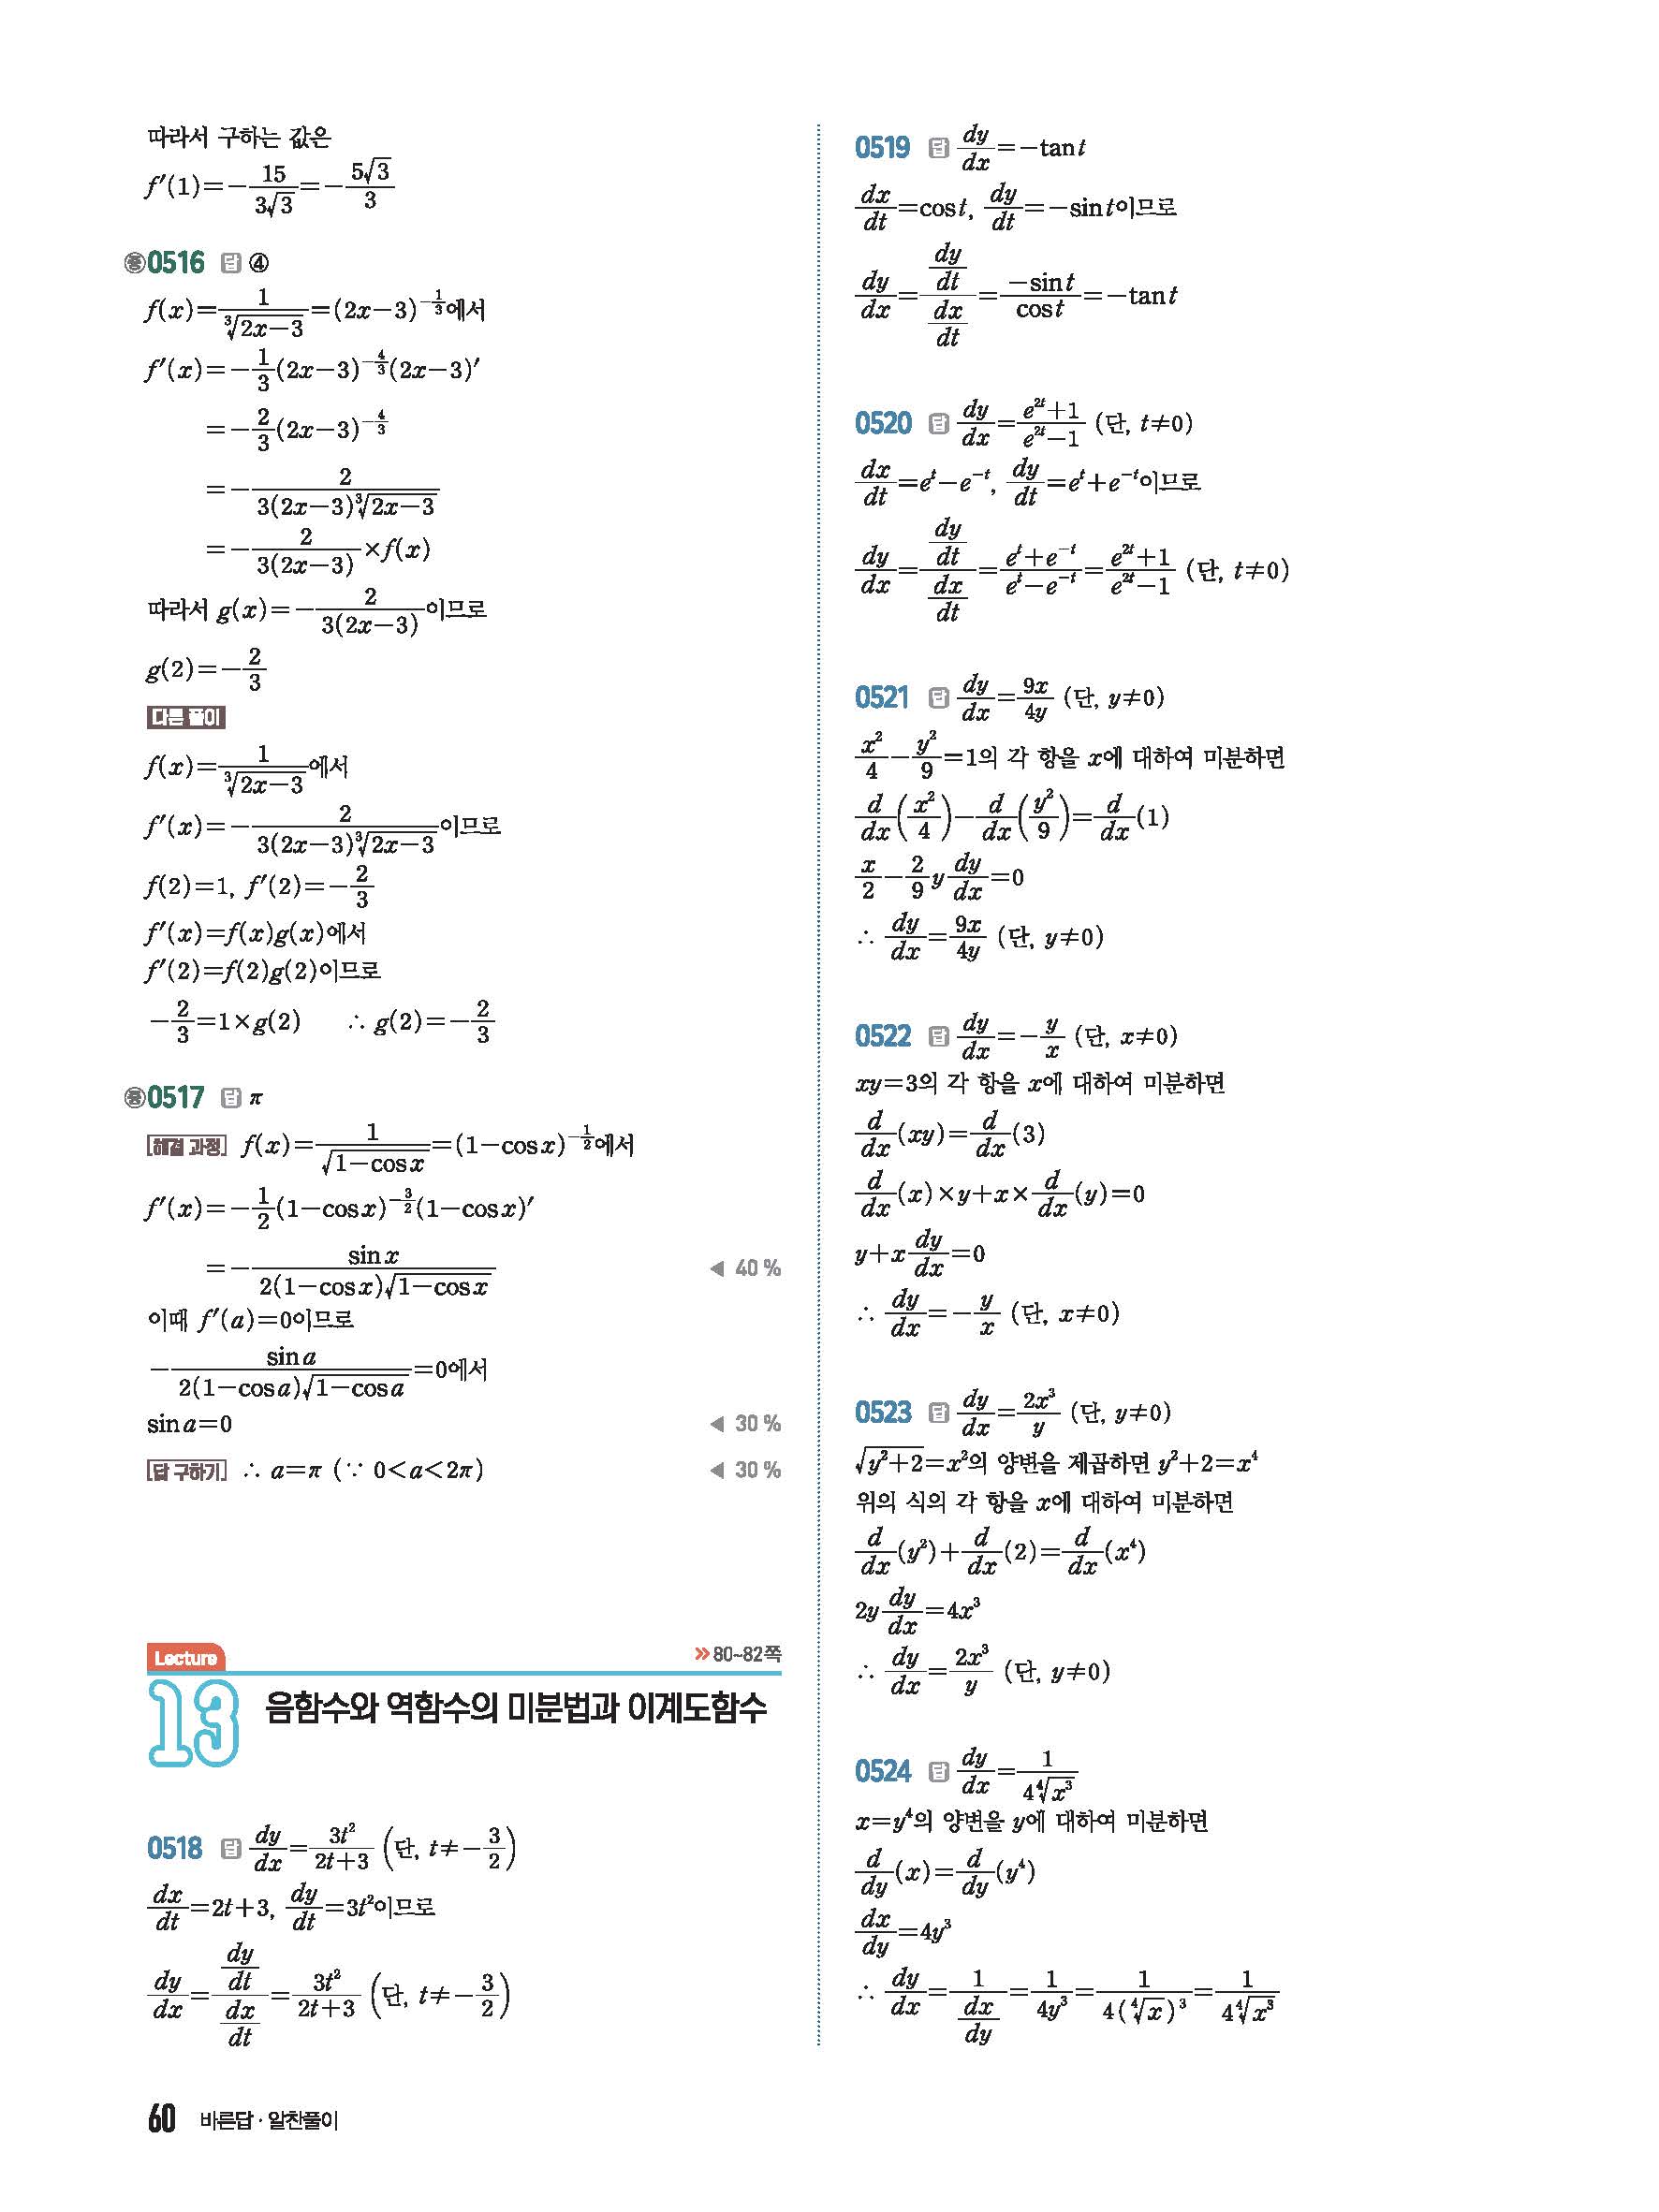 따라서 구하는 값은
f′(1)=-15/(3√3)=-(5√3)/3
중 0516 답 ④
f(x)=1/∛(2x-3)=(2x-3)^(-1/3)에서
f′(x)=-1/3(2x-3)^(-4/3)(2x-3)′
=-2/3(2x-3)^(-4/3)
=-2/(3(2x-3)∛(2x-3))
=-2/(3(2x-3))×f(x)
따라서 g(x)=-2/(3(2x-3))이므로
g(2)=-2/3
다른 풀이
f(x)=1/∛(2x-3)에서
f′(x)=-2/(3(2x-3)∛(2x-3))이므로
f(2)=1, f′(2)=-2/3
f′(x)=f(x)g(x)에서
f′(2)=f(2)g(2)이므로
-2/3=1×g(2) ∴ g(2)=-2/3
중 0517 답 π
해결 과정 f(x)=1/√(1-cos x)=(1-cos x)^(-1/2)에서
f′(x)=-1/2(1-cos x)^(-3/2)(1-cos x)′
=-sin x/(2(1-cos x)√(1-cos x)) ◀ 40 %
이때 f′(a)=0이므로
-sin a/(2(1-cos a)√(1-cos a))=0에서
sin a=0 ◀ 30 %
답 구하기 ∴ a=π (∵ 0<a<2π) ◀ 30 %
Lecture »80~82쪽
13 음함수와 역함수의 미분법과 이계도함수
0518 답 dy/dx=3t²/(2t+3) (단, t≠-3/2)
dx/dt=2t+3, dy/dt=3t²이므로
dy/dx=(dy/dt)/(dx/dt)=3t²/(2t+3) (단, t≠-3/2)
0519 답 dy/dx=-tan t
dx/dt=cos t, dy/dt=-sin t이므로
dy/dx=(dy/dt)/(dx/dt)=(-sin t)/(cos t)=-tan t
0520 답 dy/dx=(e^(2t)+1)/(e^(2t)-1) (단, t≠0)
dx/dt=e^t-e^(-t), dy/dt=e^t+e^(-t)이므로
dy/dx=(dy/dt)/(dx/dt)=(e^t+e^(-t))/(e^t-e^(-t))=(e^(2t)+1)/(e^(2t)-1) (단, t≠0)
0521 답 dy/dx=9x/4y (단, y≠0)
x²/4-y²/9=1의 각 항을 x에 대하여 미분하면
d/dx(x²/4)-d/dx(y²/9)=d/dx(1)
x/2-2/9 y dy/dx=0
∴ dy/dx=9x/4y (단, y≠0)
0522 답 dy/dx=-y/x (단, x≠0)
xy=3의 각 항을 x에 대하여 미분하면
d/dx(xy)=d/dx(3)
d/dx(x)×y+x×d/dx(y)=0
y+x dy/dx=0
∴ dy/dx=-y/x (단, x≠0)
0523 답 dy/dx=2x³/y (단, y≠0)
√(y²+2)=x²의 양변을 제곱하면 y²+2=x⁴
위의 식의 각 항을 x에 대하여 미분하면
d/dx(y²)+d/dx(2)=d/dx(x⁴)
2y dy/dx=4x³
∴ dy/dx=2x³/y (단, y≠0)
0524 답 dy/dx=1/(4∜(x³))
x=y⁴의 양변을 y에 대하여 미분하면
d/dy(x)=d/dy(y⁴)
dx/dy=4y³
∴ dy/dx=1/(dx/dy)=1/(4y³)=1/(4(∜x)³)=1/(4∜(x³))
60 바른답·알찬풀이